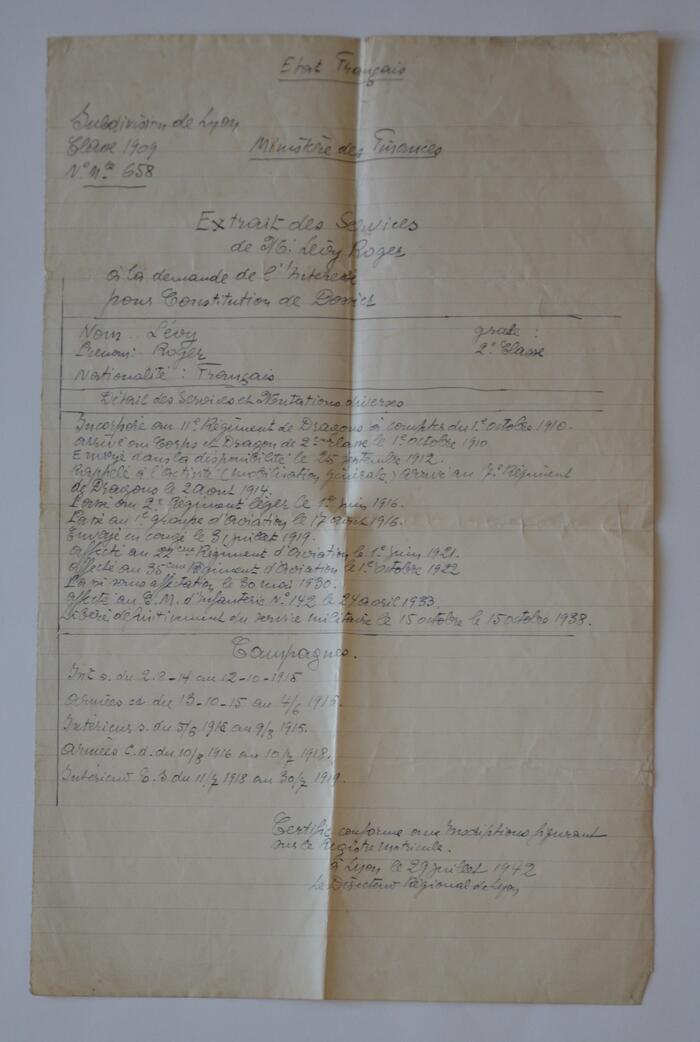 Etat Français
Subdivision de Lyon
Classe 1909
Ministère des Finances
N° Mle 658
Extrait des Services
de M. Lévy Roger
à la demande de l'Interessé
pour Constitution de Dossier
Nom : Lévy
grade :
Prenom : Roger
2e Classe
Nationalité : Français
Détail des Services et Mutations diverses
Incorporé au 11e Régiment de Dragons à compter du 1e octobre 1910.
arrivé au Corps et Dragon de 2eme classe le 1e octobre 1910
Envoyé dans la disponibilité le 25 septembre 1912.
Rappelé à l'activité (mobilisation générale) arrivé au 7e Régiment
de Dragons le 2 aout 1914.
Passé au 2e Régiment léger le 1er juin 1916.
Passé au 1e groupe d'aviation le 17 aout 1916.
Envoyé en congé le 31 juillet 1919.
affecté au 22eme Régiment d'aviation le 1e juin 1921.
affecté au 35eme Régiment d'aviation le 1e octobre 1922
Passé sans affectation le 30 mai 1930.
affecté au C.M. d'infanterie N° 142 le 24 avril 1933.
Libéré definitivement du service militaire le 15 octobre le 15 octobre 1938.
Campagnes.
Int s. du 2-8-14 au 12-10-1915
Armées cd du 13-10-15 au 4/6 1916.
Intérieur s. du 5/6 1916 au 9/8 1916.
Armées C.d. du 10/8 1916 au 10/7 1918.
Intérieur C.S du 11/7 1918 au 30/7 1919.
Certifié conforme aux Inscriptions figurant
sur le Registre matricule.
à Lyon le 29 juillet 1942
Le Directeur Régional de Lyon